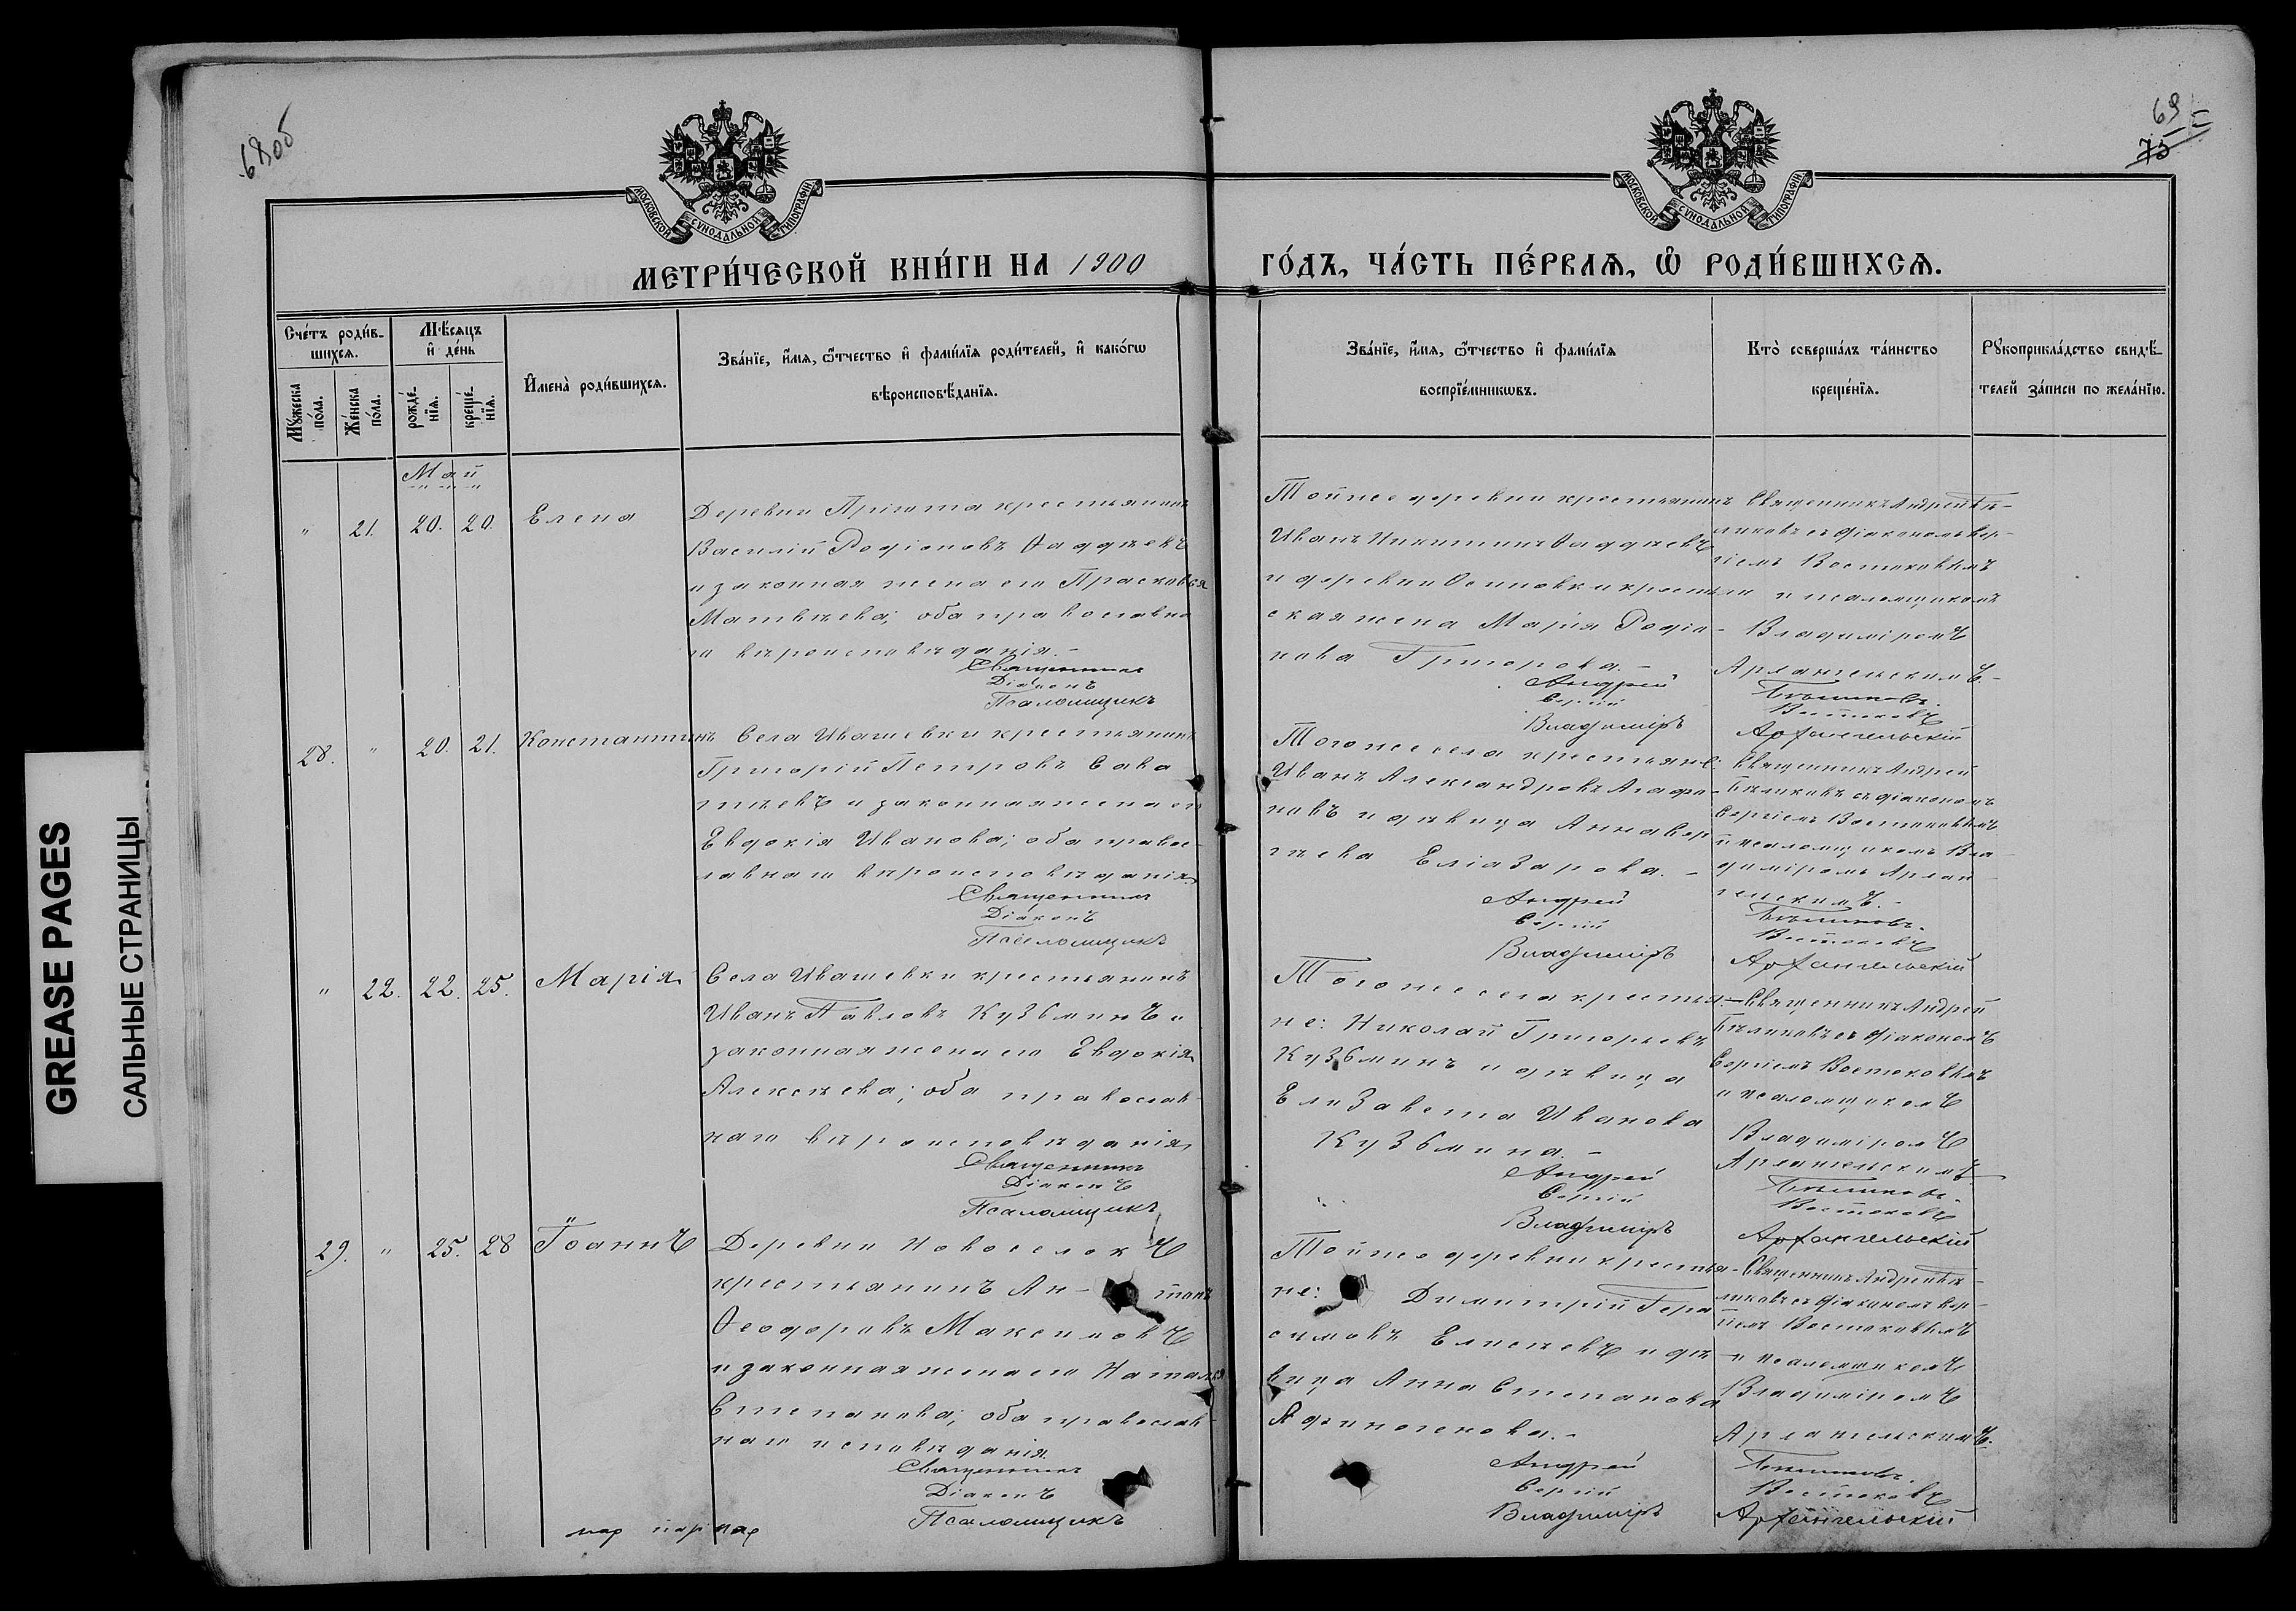 68об
69
75
МОСКОВСКОЙ СѴНОДАЛЬНОЙ ТИПОГРАФІИ
МОСКОВСКОЙ СѴНОДАЛЬНОЙ ТИПОГРАФІИ
МЕТРИ́ЧЕСКОЙ КНИ́ГИ НА 1900
ГО́ДЪ, ЧА́СТЬ ПЕ́РВАѦ, Ѡ҆ РОДИ́ВШИХСѦ.
Сче́тъ роди́в-
шихсѧ.
Мꙋ́жеска по́ла.
Же́нска по́ла.
Мѣ́сѧцъ
и҆ де́нь
рожде́-
нїѧ.
креще́-
нїѧ.
И҆мена̀ роди́вшихсѧ.
Зва́нїе, и҆́мѧ, ѻ҆́тчество и҆ фами́лїѧ роди́телей, и҆ како́гѡ
вѣроисповѣ́данїѧ.
Зва́нїе, и҆́мѧ, ѻ҆́тчество и҆ фами́лїѧ
воспрїе́мникѡвъ.
Кто̀ соверша́лъ та́инство
креще́нїѧ.
Рꙋкоприкла́дство свидѣ́-
телей за́писи по жела́нїю.
Май
" 21. 20. 20. Елена
Деревни Пріюта крестьянинъ
Василій Родіоновъ Фаддѣевъ
и законная жена его Прасковья
Матвѣева; оба православна-
го вѣроисповѣданія.-
Священникъ
Діаконъ
Псаломщикъ
Той же деревни крестьянинъ
Иванъ Никитинъ Фаддѣевъ
и деревни Осиповки крестьян-
ская жена Марія Родіо-
нова Григорова.-
Андрей
Сергій
Владиміръ
Священникъ Андрей Бѣ-
ликовъ съ діакономъ Сер-
гіемъ Востоковымъ
и псаломщикомъ
Владиміромъ
Архангельскимъ.-
Бѣликовъ.
Востоковъ
Архангельскій
28. " 20. 21. Константинъ
Села Ивашевки крестьянинъ
Григорій Петровъ Сава
тѣевъ и законная жена его
Евдокія Иванова; оба правос-
лавнаго вѣроисповѣданія.
Священникъ
Діаконъ
Псаломщикъ
Того же села крестьяне:
Иванъ Александровъ Агафо-
новъ и дѣвица Анна Сер
гѣева Еліазарова.-
Андрей
Сергій
Владиміръ
Священникъ Андрей
Бѣликовъ съ діакономъ
Сергіемъ Востоковымъ
и псаломщикомъ Вла-
диміромъ Архан-
гельскимъ.-
Бѣликовъ.
Востоковъ
Архангельскій
" 22. 22. 25. Марія
Села Ивашевки крестьянинъ
Иванъ Павловъ Кузьминъ и
законная жена его Евдокія
Алексѣева; оба православ-
наго вѣроисповѣданія
Священникъ
Діаконъ
Псаломщикъ
Того же села крестья-
не: Николай Григорьевъ
Кузьминъ и дѣвица
Елизавета Иванова
Кузьмина.-
Андрей
Сергій
Владиміръ
Священникъ Андрей
Бѣликовъ съ діакономъ
Сергіемъ Востоковымъ
и псаломщикомъ
Владиміромъ
Архангельскимъ
Бѣликовъ.
Востоковъ
Архангельскій
29. " 25. 28 Іоаннъ
Деревни Новоселокъ
крестьянинъ Ан- тонъ
Ѳеодоровъ Максимовъ
и законная жена его Наталья
Степанова; оба православ-
наго исповѣданія.
Священникъ
Діаконъ
Псаломщикъ
Той же деревни крестья-
не: Димитрій Гера
симовъ Елисѣевъ и дѣ-
вица Анна Степанова
Афиногенова.-
Андрей
Сергій
Владиміръ
Священникъ Андрей Бѣ-
ликовъ съ діакономъ Сер-
гіемъ Востоковымъ
и псаломщикомъ
Владиміромъ
Архангельскимъ.
Бѣликовъ.
Востоковъ
Архангельскій
GREASE PAGES
САЛЬНЫЕ СТРАНИЦЫ